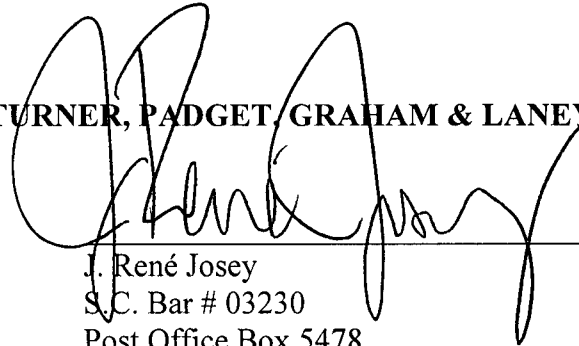 TURNER, PADGET, GRAHAM & LANEY
J. René Josey
J. René Josey
S.C. Bar # 03230
Post Office Box 5478